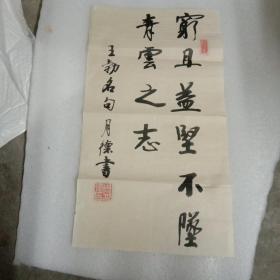 窮且益堅不墜
青雲之志
王勃名句月德書